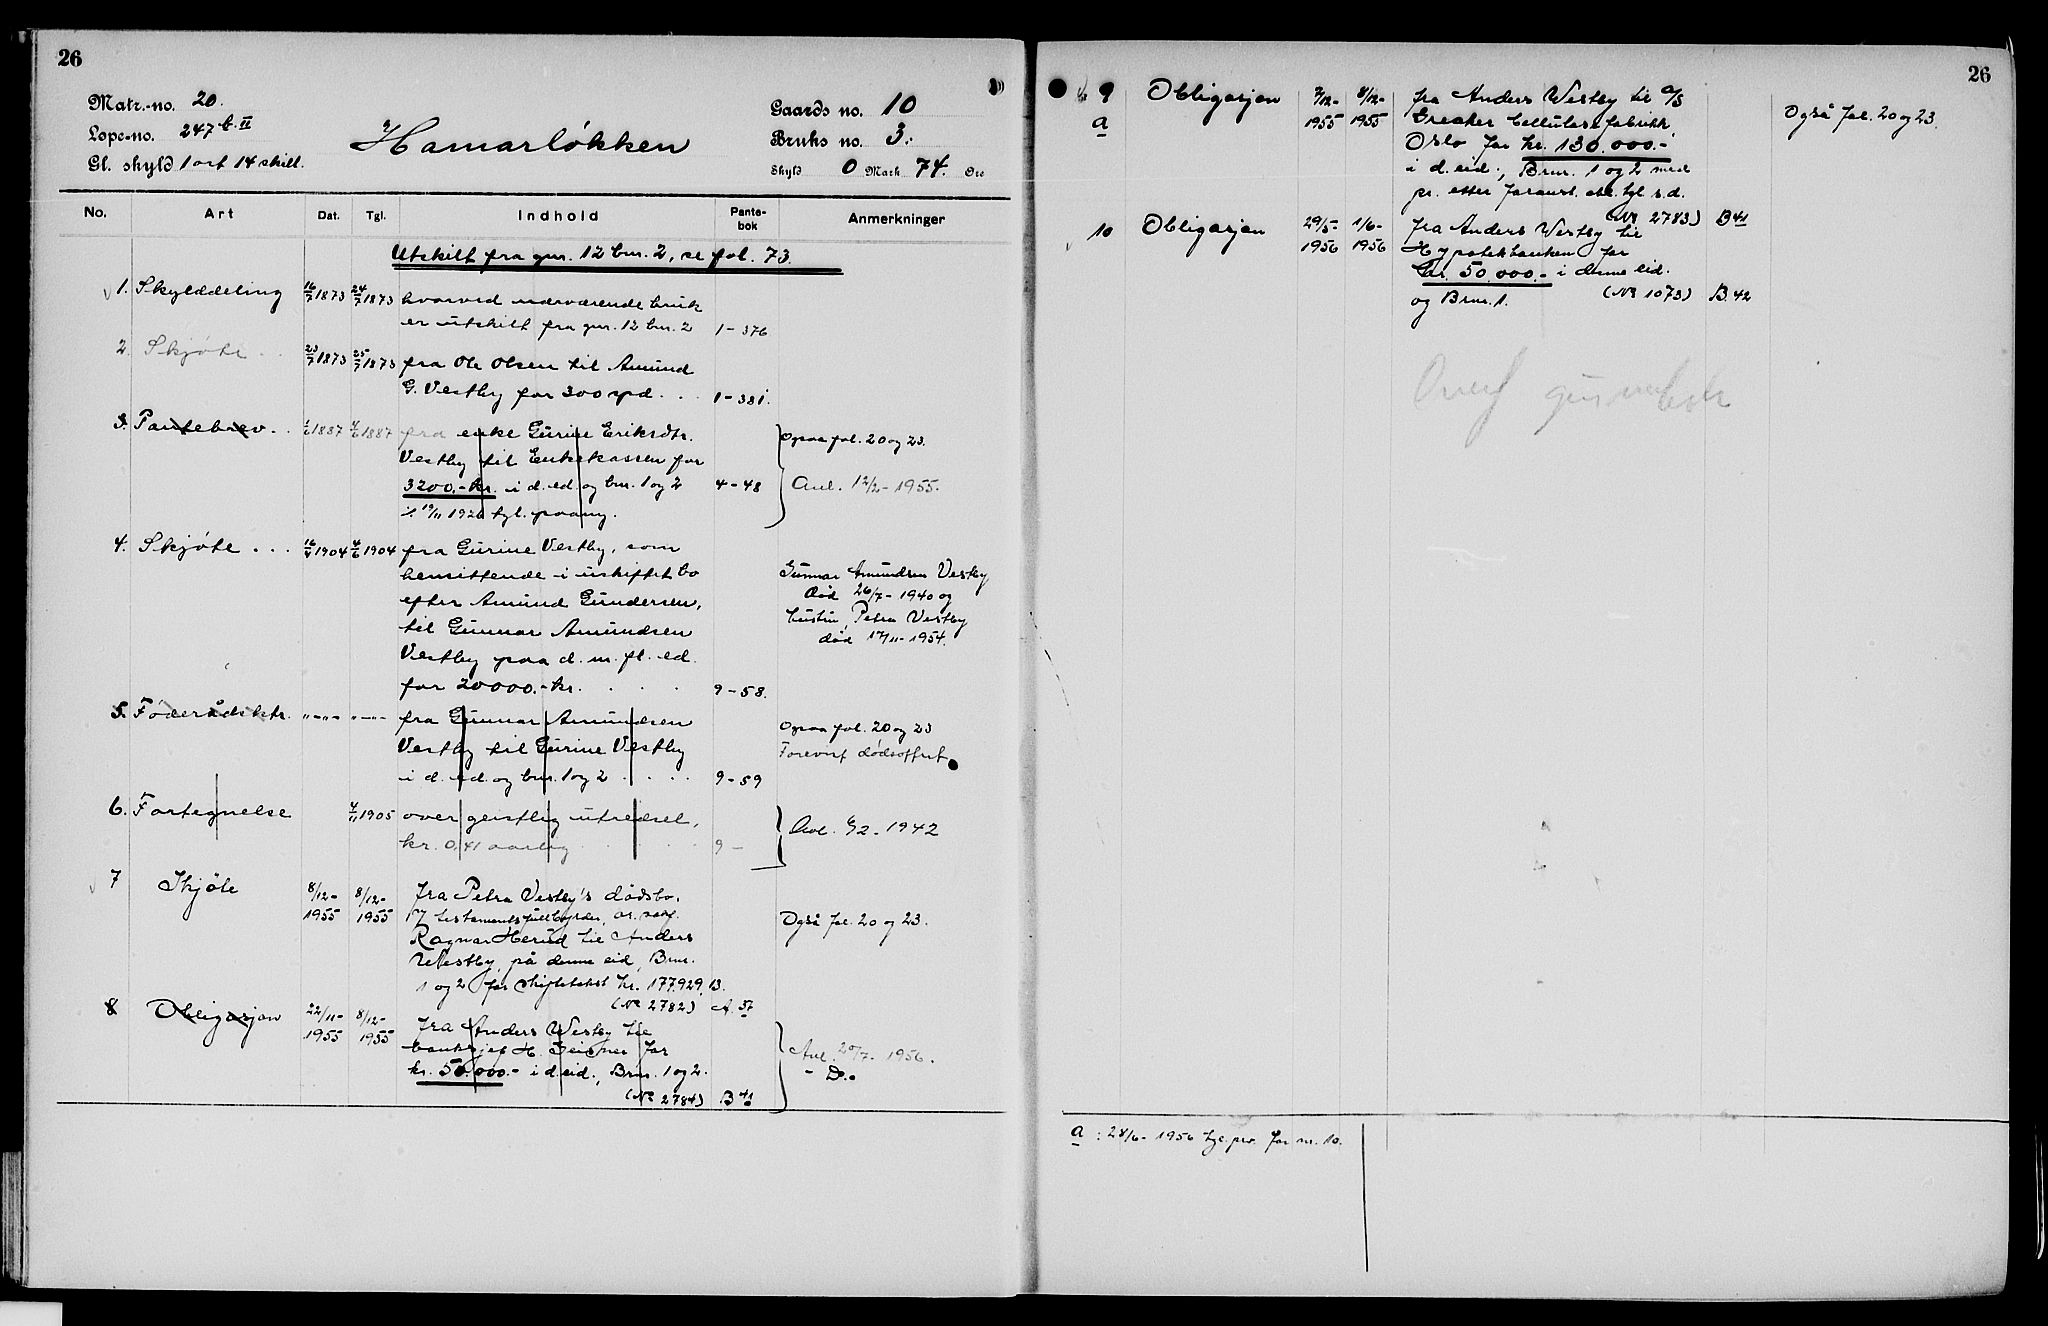 26
Matr.-no. 20.
Løpe-no. 247 b. II
Gl. skyld 1 ort 14 skill.
Hamarløkken
Gaards no. 10
Bruks no. 3.
Skyld 0 Mark 74. Øre
No. Art Dat. Tgl. Indhold Pante-bok Anmerkninger
Utskilt fra gnr. 12 bnr. 2, se fol. 73.
1. Skylddeling 16/7 1873 24/7 1873 hvorved nærværende bruk
er utskilt fra gnr. 12 bnr. 2 1-376
2. Skjøte 23/7 1873 25/7 1873 fra Ole Olsen til Amund
G. Vestby for 300 spd. 1-381.
3. Pantebrev 1887 1887 fra enke Gurine Eriksdtr. Ogsaa fol. 20 og 23.
Vestby til Enkekassen for
3200.- kr. i d. ed. og bnr. 1 og 2 4-48 Avl. 12/2-1955.
19/11 1926 tgl. paany.
4. Skjøte 16/4 1904 4/6 1904 fra Gurine Vestby, som
hensittende i uskiftet bo Gunnar Amundsen Vestby
efter Amund Gundersen, død 26/7-1940 og
til Gunnar Amundsen hustru, Petra Vestby
Vestby paa d. m. fl. ed. død 17/11-1954.
for 20000.- kr. 9-58.
5. Føderådsktr. "-"- "-"- fra Gunnar Amundsen Ogsaa fol. 20 og 23
Vestby til Gurine Vestby Forevist dødsattest
i d. ed. og bnr. 1 og 2 9-59
6. Fortegnelse 4/11 1905 over geistlig utredsel,
kr. 0,41 aarlig 9- 1942
7 Skjøte 8/12- 8/12- fra Petra Vestby's dødsbo.
1955 1955 v/ testamentsfullbyrder, or. sakf. Også fol. 20 og 23.
Ragnar Herud til Anders
Westby, på denne eid, Brnr.
1 og 2 for skiftetakst kr. 177.929.13.
(Nr 2782) A. 37
8 Obligasjon 22/11- 8/12- fra Anders Westby til
1955 1955 banksjef H. for Avl. 20/7-1956.
kr. 50.000.- i d. eid., Brnr. 1 og 2. - D.
(Nr 2784) B 41
26
9 Obligasjon 2/12- 8/12- fra Anders Westby til A/S
a 1955 1955 Greaker Cellulosefabrikk, Også fol. 20 og 23.
Oslo for kr. 130.000.-
i d. eid., Brnr. 1 og 2 med
pr. etter s.d.
(Nr 2783) B 41
10 Obligasjon 29/5- 1/6- fra Anders Westby til
1956 1956 Hypotekbanken for
kr. 50.000.- i denne eid.
og Brnr. 1. (Nr 1073) B. 42
a : 28/6-1956 tgl. pr. for nr. 10.